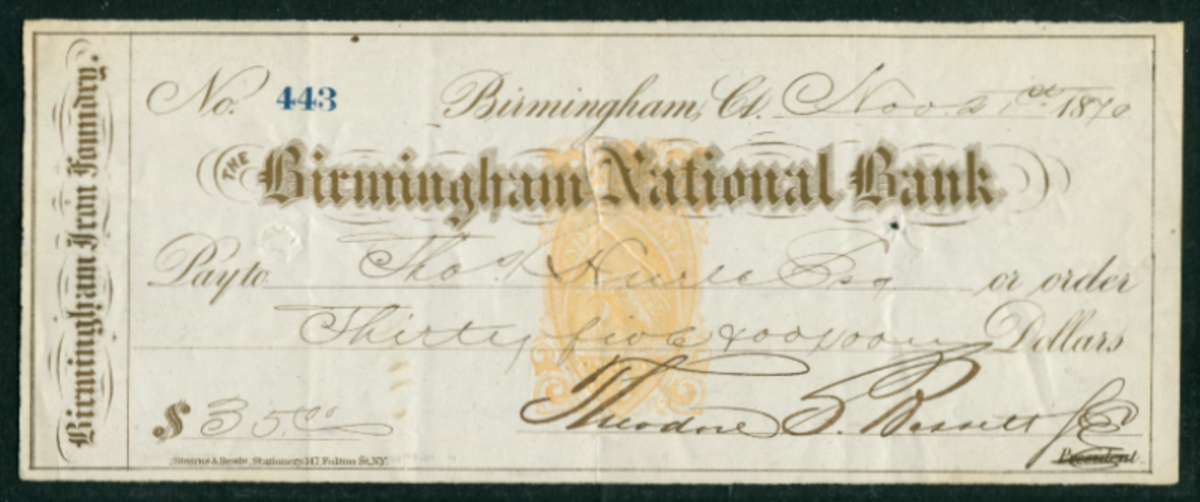 Birmingham Iron Foundry.
No. 443 Birmingham, Ct. Nov. 21st 1870
THE Birmingham National Bank
Pay to Thos. Esq or order
Thirty five &00/100 Dollars
$ 35.00 Theodore S. Bassett
President
Stearns & Beale, Stationers, 147 Fulton St, N.Y.